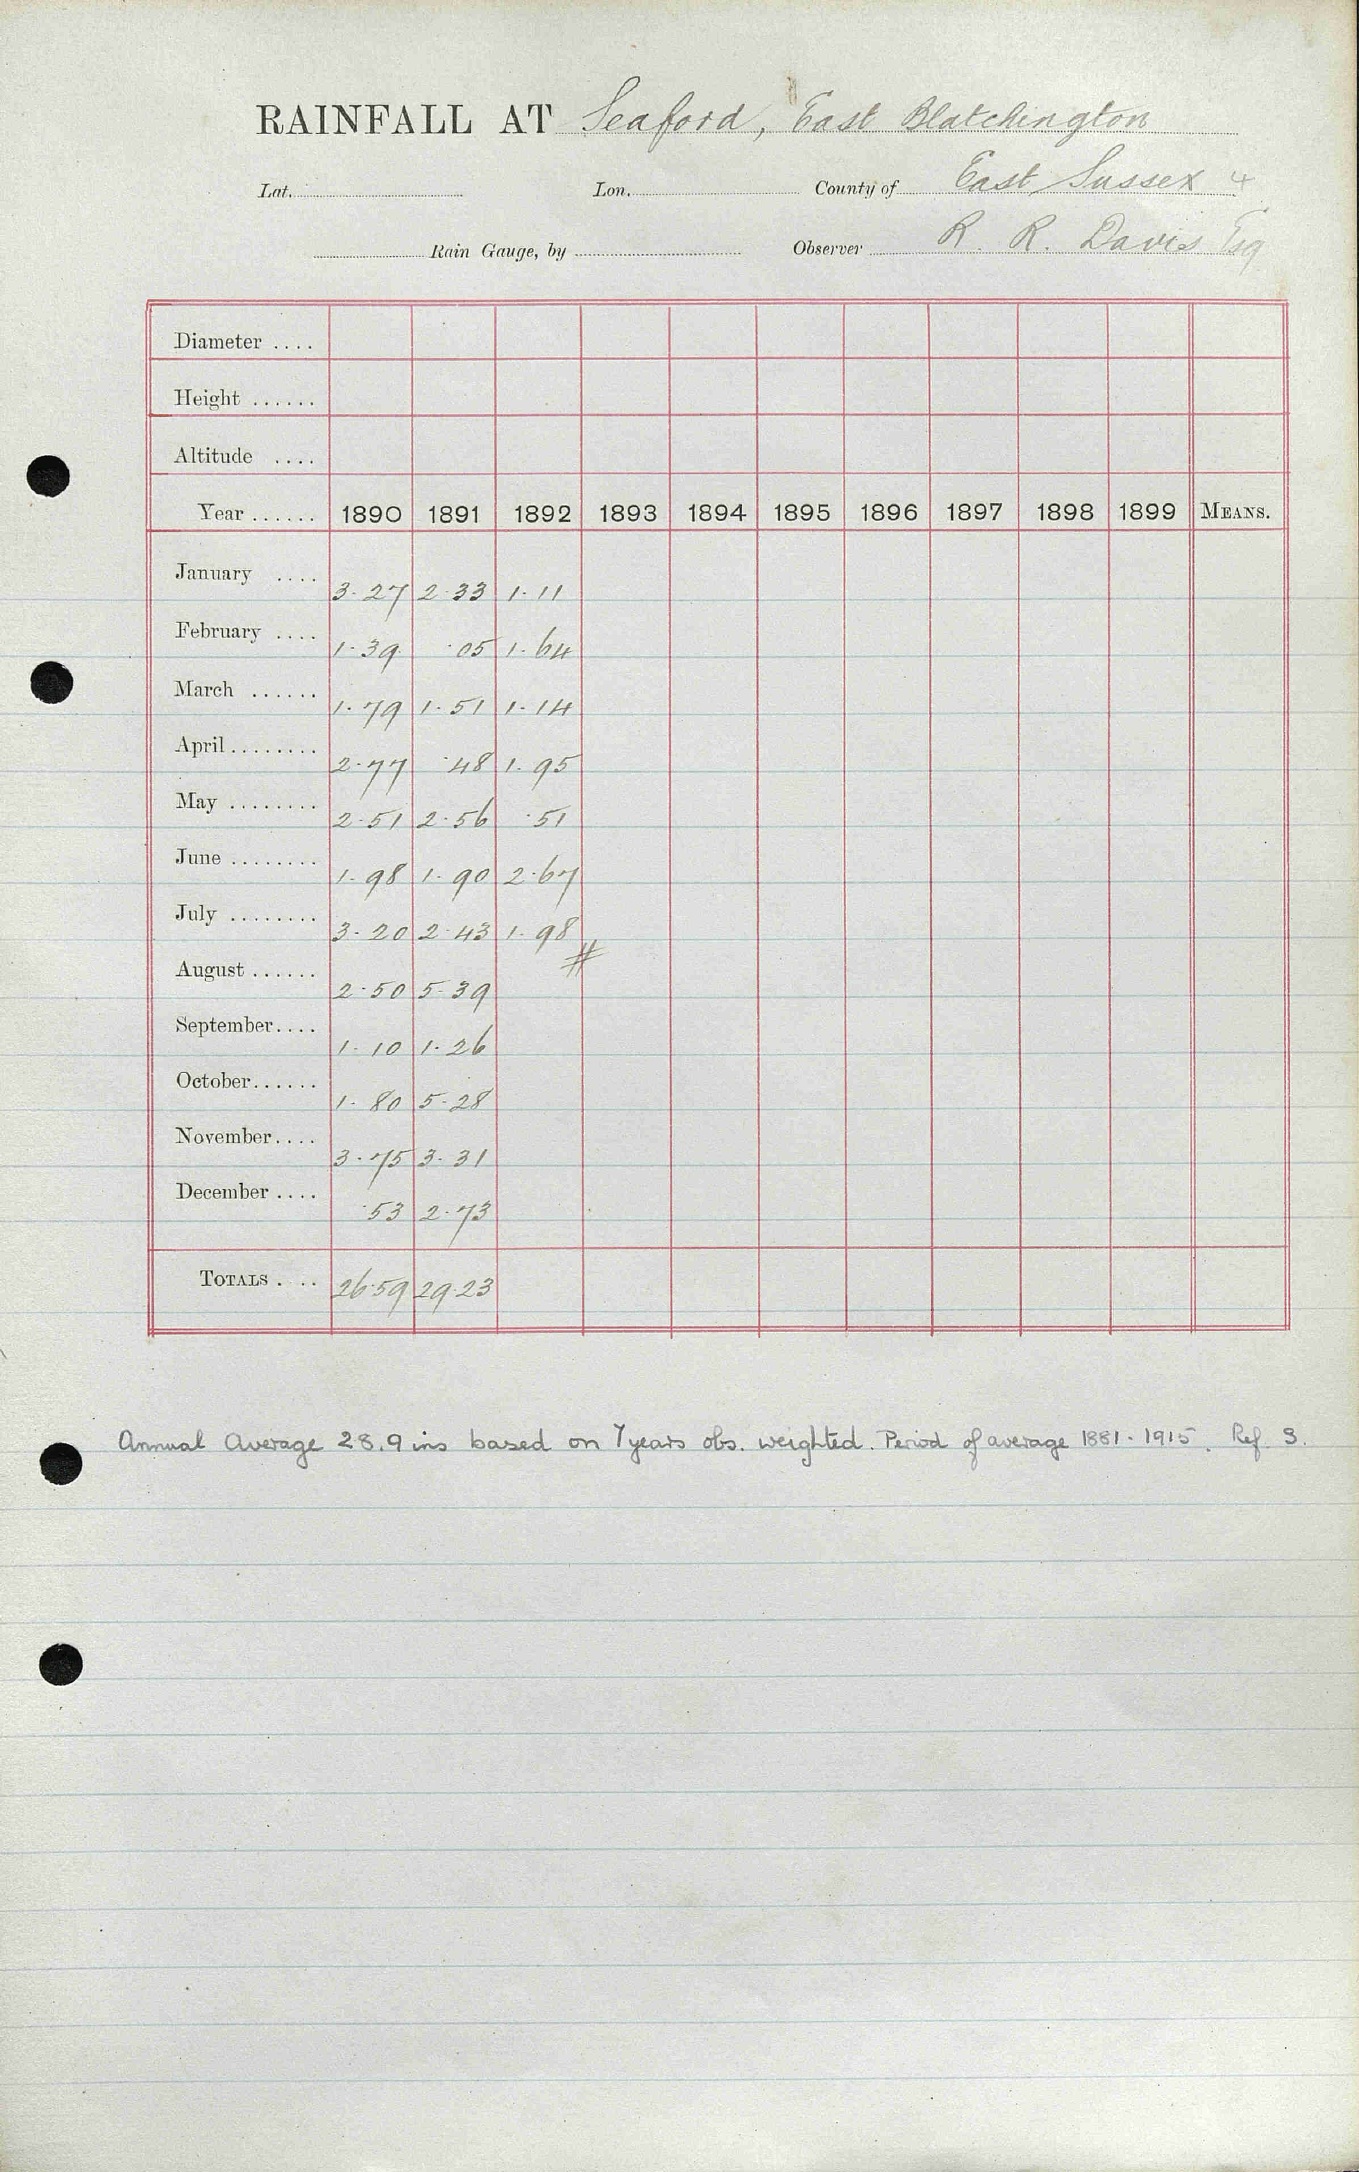 RAINFALL AT Seaford, East Blatchington
Lat. Lon. County of East Sussex 4
Rain Gauge, by Observer R. R. Davis Esq
Diameter ....
Height ......
Altitude ....
Year ...... 1890 1891 1892 1893 1894 1895 1896 1897 1898 1899 MEANS.
January .... 3.27 2.33 1.11
February .... 1.39 .05 1.64
March ...... 1.79 1.51 1.14
April ........ 2.77 .48 1.95
May ........ 2.51 2.56 .51
June ........ 1.98 1.90 2.67
July ........ 3.20 2.43 1.98
#
August ...... 2.50 5.39
September.... 1.10 1.26
October...... 1.80 5.28
November.... 3.75 3.31
December .... .53 2.73
TOTALS . .. 26.59 29.23
Annual Average 28.9 ins based on 7 years obs. weighted. Period of average 1881-1915. Ref. 3.